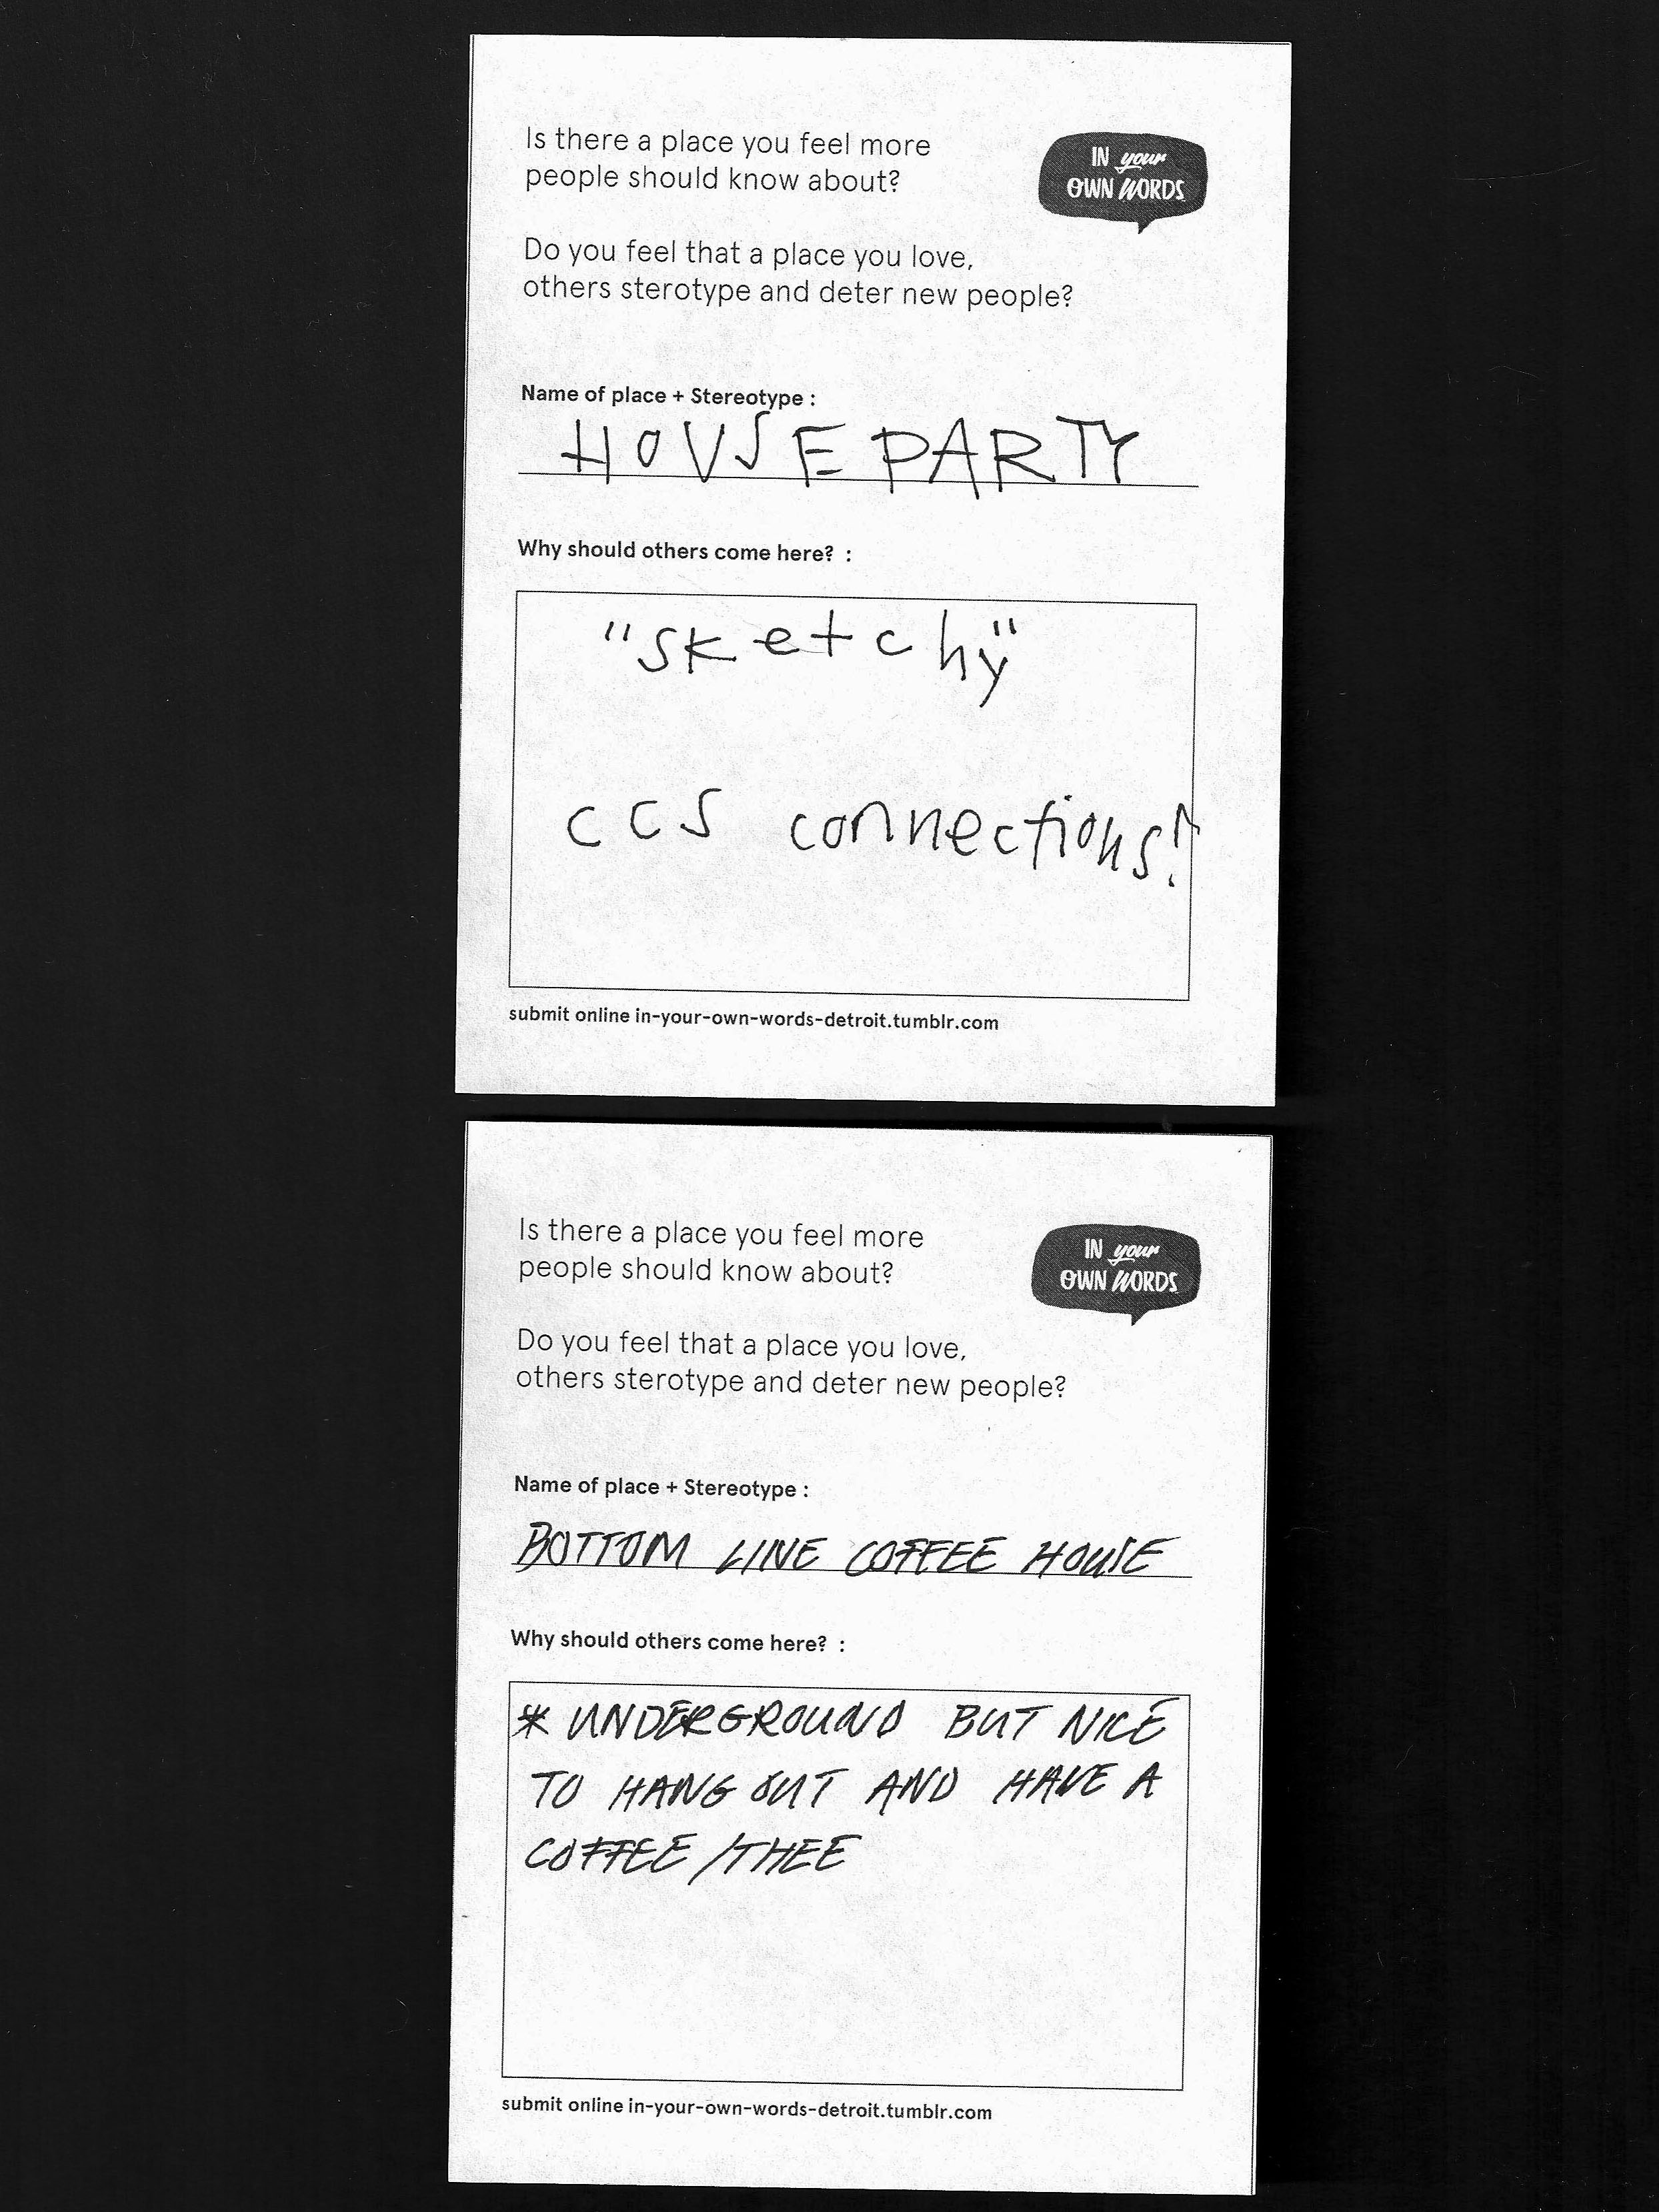 Is there a place you feel more
people should know about?
IN your
OWN WORDS
Do you feel that a place you love,
others sterotype and deter new people?
Name of place + Stereotype :
HOUSE PARTY
Why should others come here? :
"sketchy"
ccs connections!
submit online in-your-own-words-detroit.tumblr.com
Is there a place you feel more
people should know about?
IN your
OWN WORDS
Do you feel that a place you love,
others sterotype and deter new people?
Name of place + Stereotype :
BOTTOM LINE COFFEE HOUSE
Why should others come here? :
* UNDERGROUND BUT NICE
TO HANG OUT AND HAVE A
COFFEE /THEE
submit online in-your-own-words-detroit.tumblr.com